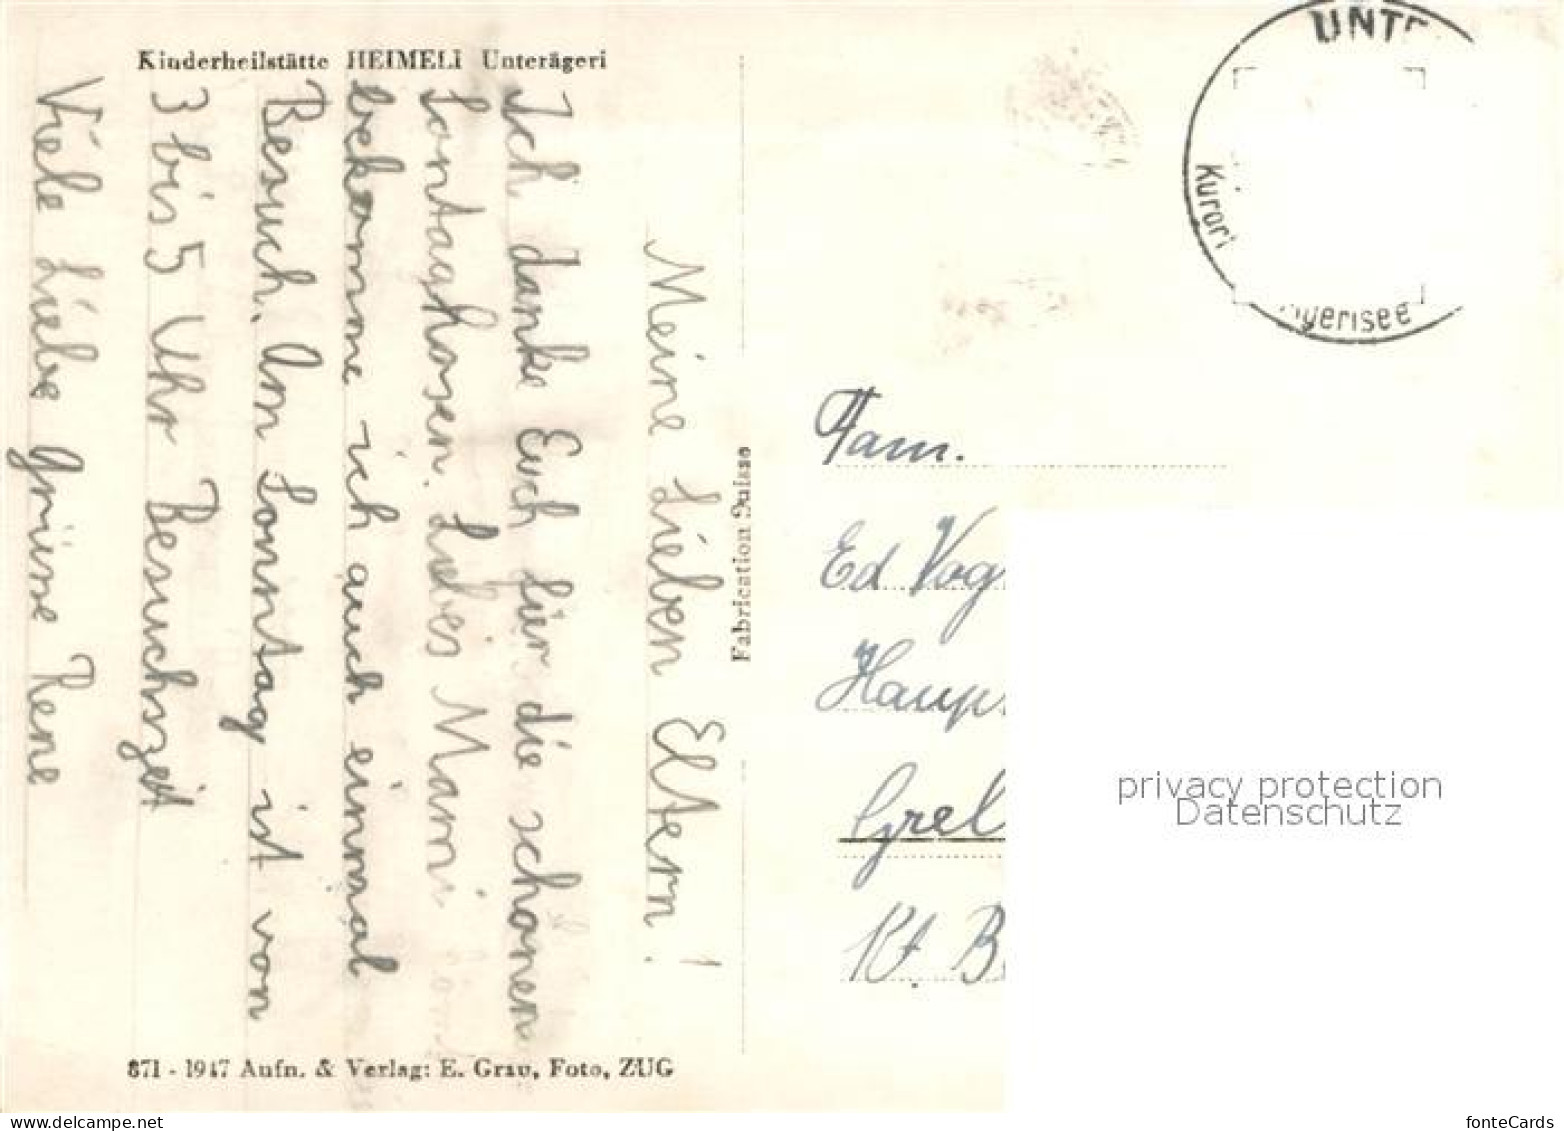 Kinderheilstätte HEIMELI Unterägeri
Meine Lieben Eltern!
Ich danke Euch für die schonen
Sontaghosen. Liebes Mami
bekomme ich auch einmal
Besuch. Am Sonntag ist von
3 bis 5 Uhr Besuchszeit
Viele Liebe Grüsse Rene
871 - 1947 Aufn. & Verlag: E. Grau, Foto, ZUG
Fabrication Suisse
UNTE
Kurort
gerisee
Fam.
Ed Vog
Haup
Grel
Kt. B
privacy protection
Datenschutz
fonteCards
www.delcampe.net